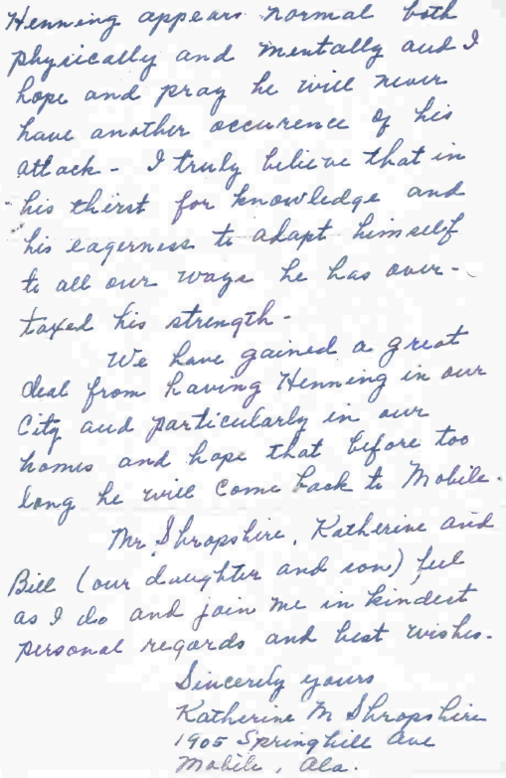 Henning appears normal both
physically and mentally and I
hope and pray he will never
have another occurence of his
attack - I truly believe that in
his thirst for knowledge and
his eagerness to adapt himself
to all our ways he has over-
taxed his strength -
We have gained a great
deal from having Henning in our
City and particularly in our
homes and hope that before too
long he will come back to Mobile.
Mr. Shropshire, Katherine and
Bill (our daughter and son) feel
as I do and join me in kindest
personal regards and best wishes.
Sincerely yours
Katherine M Shropshire
1905 Springhill Ave
Mobile, Ala.